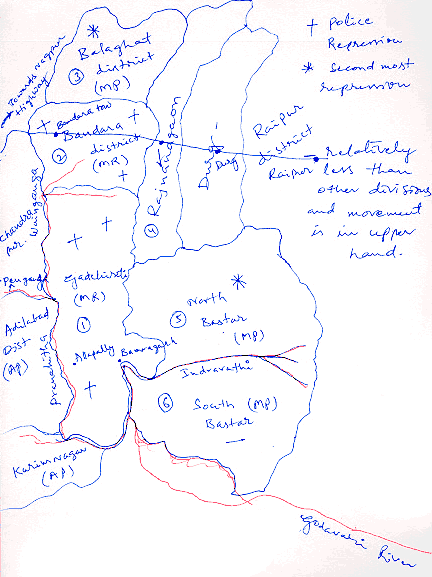 † Police
Repression
* Second most
repression
*
Balaghat
③ district
(MP)
Towards nagpur
Highway
Bandara town
† Bandara †
② district
(MR)
†
④ Rajnandgaon
Durg
Durg
Raipur
district
Raipur
- relatively
less than
other divisions
and movement
is in upper
hand.
Wainganga
Chandra
pur.
† †
Gadchiroli
(MR)
①
Adilabad
Dist
(AP)
Pranahitha
Alapally
†
*
North
⑤ Bastar
(MP)
Indravathi
⑥ South (MP)
Bastar
—
Karimnagar
(AP)
Godavari River